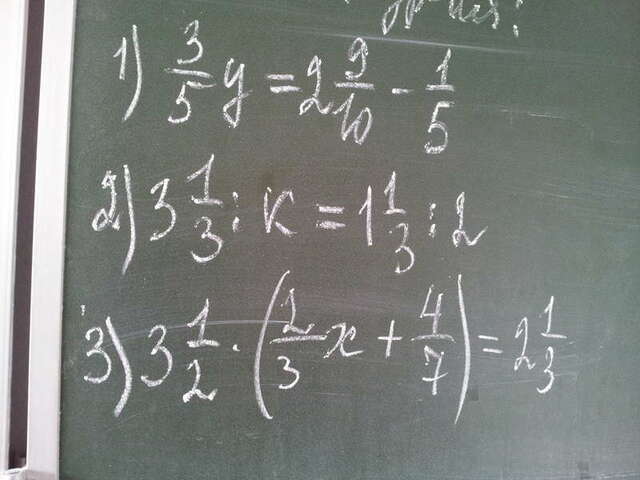 1) 3/5 y = 2 9/10 - 1/5
2) 3 1/3 : к = 1 1/3 : 2
3) 3 1/2 · (2/3 x + 4/7) = 2 1/3